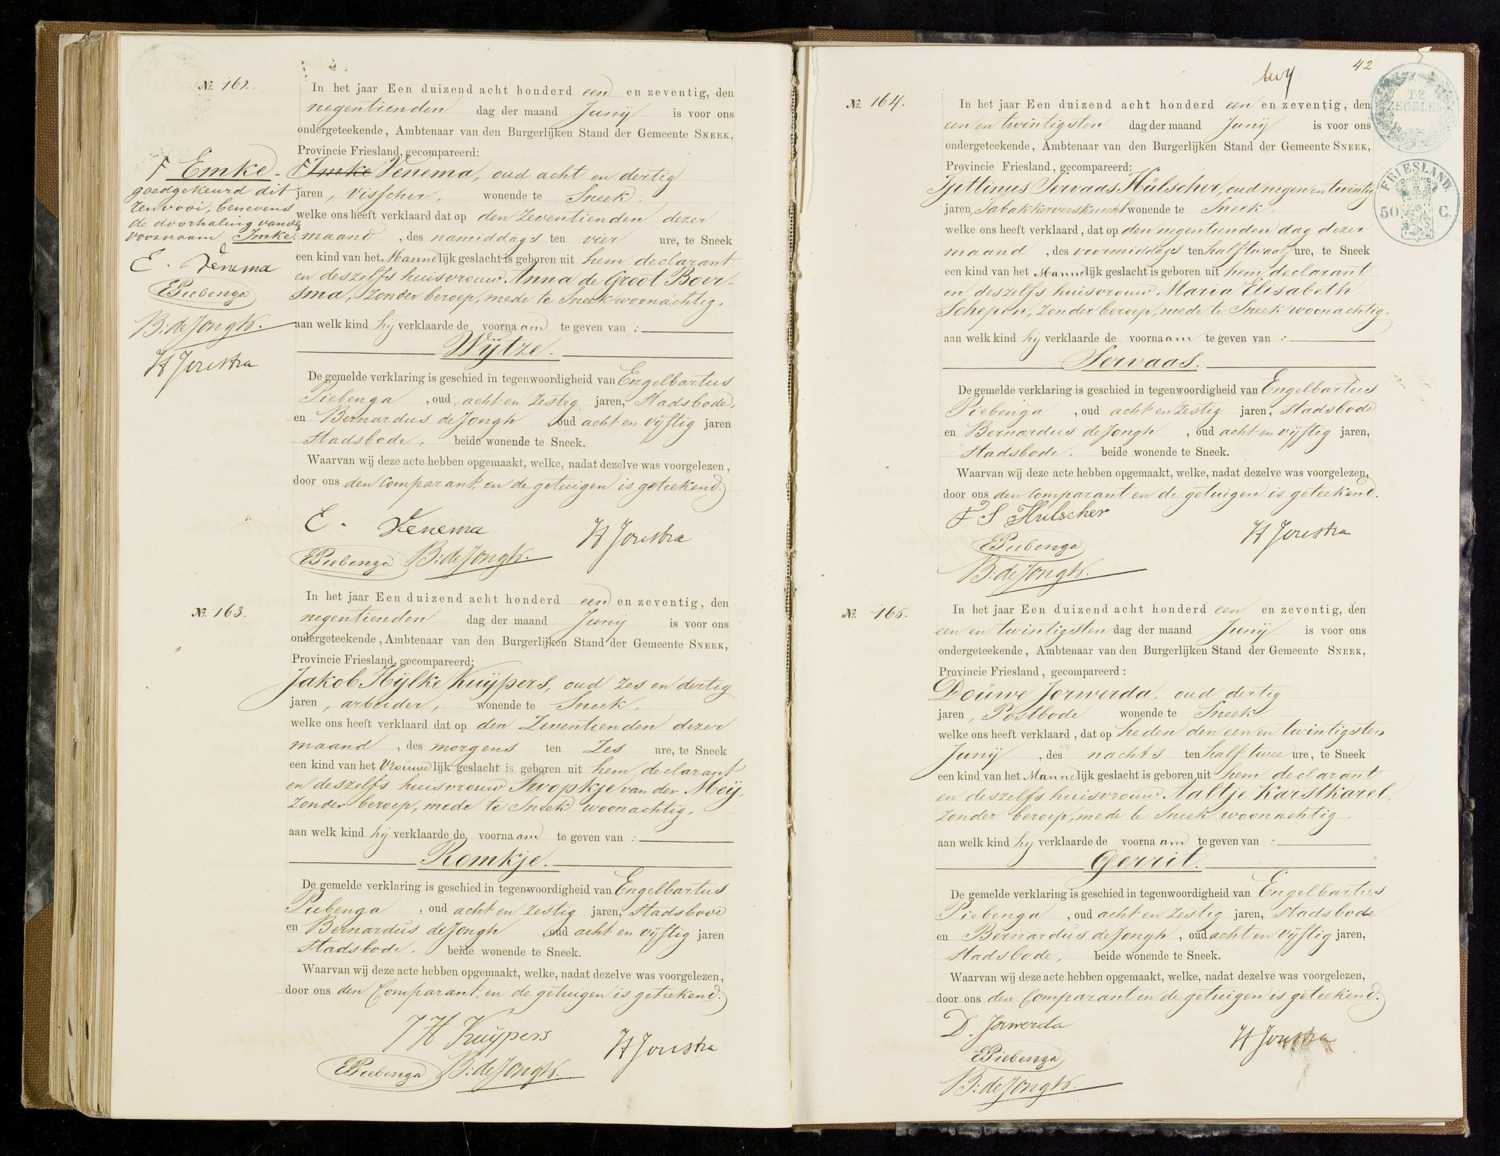 № 162.
In het jaar Een duizend acht honderd een en zeventig, den
negentienden dag der maand Junij is voor ons
ondergeteekende, Ambtenaar van den Burgerlijken Stand der Gemeente SNEEK,
Provincie Friesland, gecompareerd:
Imke Venema, oud acht en dertig
jaren, visscher, wonende te Sneek.
welke ons heeft verklaard dat op den zeventienden dezer
maand, des namiddags ten vier ure, te Sneek
een kind van het Mannelijk geslacht is geboren uit hem declarant
en deszelfs huisvrouw Anna de Groot Boer-
sma, zonder beroep, mede te Sneek woonachtig.
aan welk kind hij verklaarde de voornaam te geven van :
Wijtze.
De gemelde verklaring is geschied in tegenwoordigheid van Engelbartus
Piebenga, oud acht en zestig jaren, Stadsbode,
en Bernardus de Jongh, oud acht en vijftig jaren
Stadsbode, beide wonende te Sneek.
Waarvan wij deze acte hebben opgemaakt, welke, nadat dezelve was voorgelezen,
door ons den Comparant en de getuigen is geteekend
E. Venema
H Joustra
EPiebenga B: de Jongh.
Emke
goedgekeurd dit
renvooi, benevens
de doorhaling van de
voornaam Imke.
E. Venema
EPiebenga
B: de Jongh.
H Joustra
№ 163.
In het jaar Een duizend acht honderd een en zeventig, den
negentienden dag der maand Junij is voor ons
ondergeteekende, Ambtenaar van den Burgerlijken Stand der Gemeente SNEEK,
Provincie Friesland, gecompareerd:
Jakob Hylke Kuijpers, oud zes en dertig
jaren, arbeider, wonende te Sneek.
welke ons heeft verklaard dat op den zeventienden dezer
maand, des morgens ten zes ure, te Sneek
een kind van het Vrouwelijk geslacht is geboren uit hem declarant
en deszelfs huisvrouw van der Meij,
zonder beroep, mede te Sneek woonachtig.
aan welk kind hij verklaarde de voornaam te geven van :
Romkje.
De gemelde verklaring is geschied in tegenwoordigheid van Engelbartus
Piebenga, oud acht en zestig jaren, Stadsbode
en Bernardus de Jongh, oud acht en vijftig jaren
Stadsbode. beide wonende te Sneek.
Waarvan wij deze acte hebben opgemaakt, welke, nadat dezelve was voorgelezen,
door ons den Comparant en de getuigen is geteekend.
J H Kuijpers
H Joustra
EPiebenga B: de Jongh.
42
TE
ZEGELEN
FRIESLAND.
50 C.
№ 164.
In het jaar Een duizend acht honderd een en zeventig, den
een en twintigsten dag der maand Junij is voor ons
ondergeteekende, Ambtenaar van den Burgerlijken Stand der Gemeente SNEEK,
Provincie Friesland, gecompareerd:
Servaas Hülscher, oud negen en twintig
jaren, Tabakkerversknecht wonende te Sneek.
welke ons heeft verklaard, dat op den negentienden dag dezer
maand, des voormiddags ten half twaalf ure, te Sneek
een kind van het Mannelijk geslacht is geboren uit hem declarant
en deszelfs huisvrouw Maria Elisabeth
Schepon, zonder beroep, mede te Sneek woonachtig.
aan welk kind hij verklaarde de voornaam te geven van :
Servaas.
De gemelde verklaring is geschied in tegenwoordigheid van Engelbartus
Piebenga, oud acht en zestig jaren, Stadsbode
en Bernardus de Jongh, oud acht en vijftig jaren,
Stadsbode. beide wonende te Sneek.
Waarvan wij deze acte hebben opgemaakt, welke, nadat dezelve was voorgelezen,
door ons den Comparant en de getuigen is geteekend.
S Hulscher
H Joustra
EPiebenga
B: de Jongh.
№ 165.
In het jaar Een duizend acht honderd een en zeventig, den
een en twintigsten dag der maand Junij is voor ons
ondergeteekende, Ambtenaar van den Burgerlijken Stand der Gemeente SNEEK,
Provincie Friesland, gecompareerd:
Douwe Jorwerda, oud dertig
jaren, Postbode wonende te Sneek
welke ons heeft verklaard, dat op heden den een en twintigsten
Junij, des nachts ten half twee ure, te Sneek
een kind van het Mannelijk geslacht is geboren uit hem declarant
en deszelfs huisvrouw Aaltje Karstkarel,
zonder beroep, mede te Sneek woonachtig.
aan welk kind hij verklaarde de voornaam te geven van :
Gerrit.
De gemelde verklaring is geschied in tegenwoordigheid van Engelbartus
Piebenga, oud acht en zestig jaren, Stadsbode
en Bernardus de Jongh, oud acht en vijftig jaren,
Stadsbode, beide wonende te Sneek.
Waarvan wij deze acte hebben opgemaakt, welke, nadat dezelve was voorgelezen,
door ons den Comparant en de getuigen is geteekend.
D. Jorwerda
H Joustra
EPiebenga
B: de Jongh.